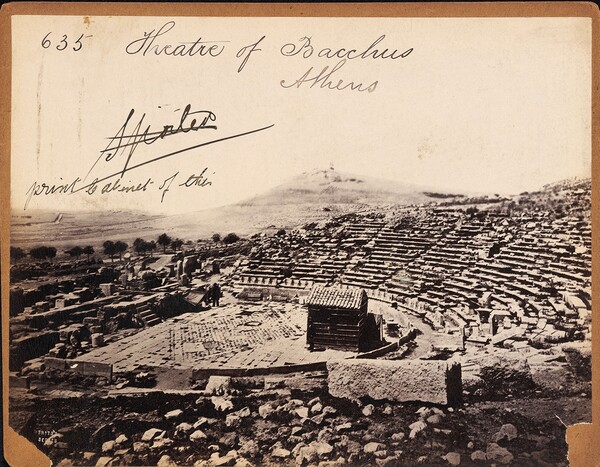 635 Theatre of Bacchus
Athens
print Cabinet of this